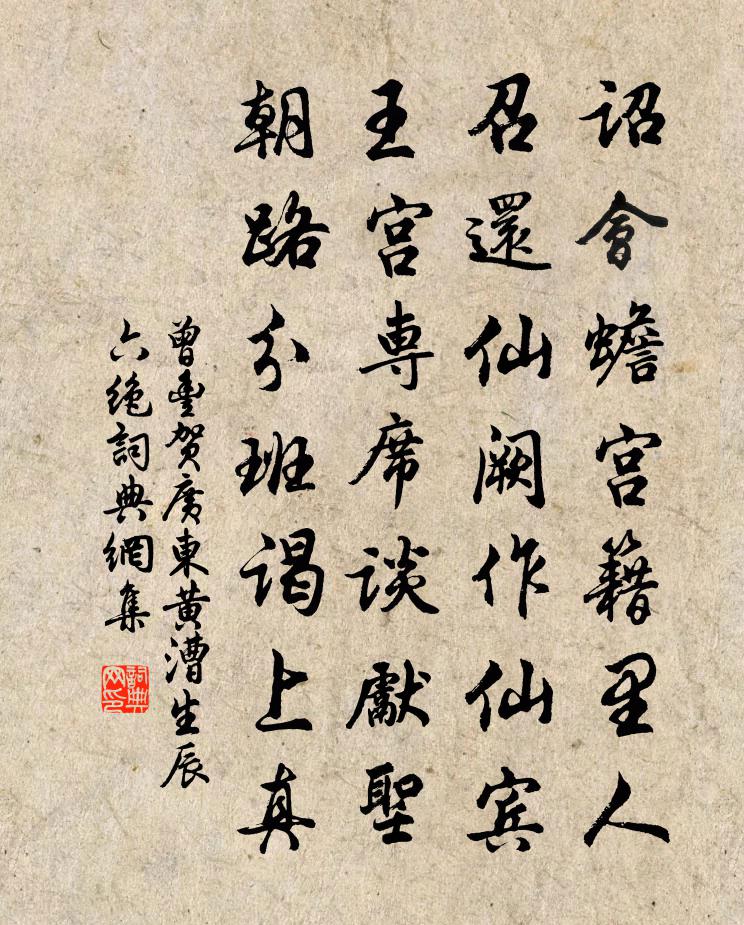 詔會蟾宮籍里人
召還仙闕作仙賓
王宮專席談獻聖
朝路分班謁上真
曾豐賀廣東黃漕生辰
六絶詞典網集
詞典
网印